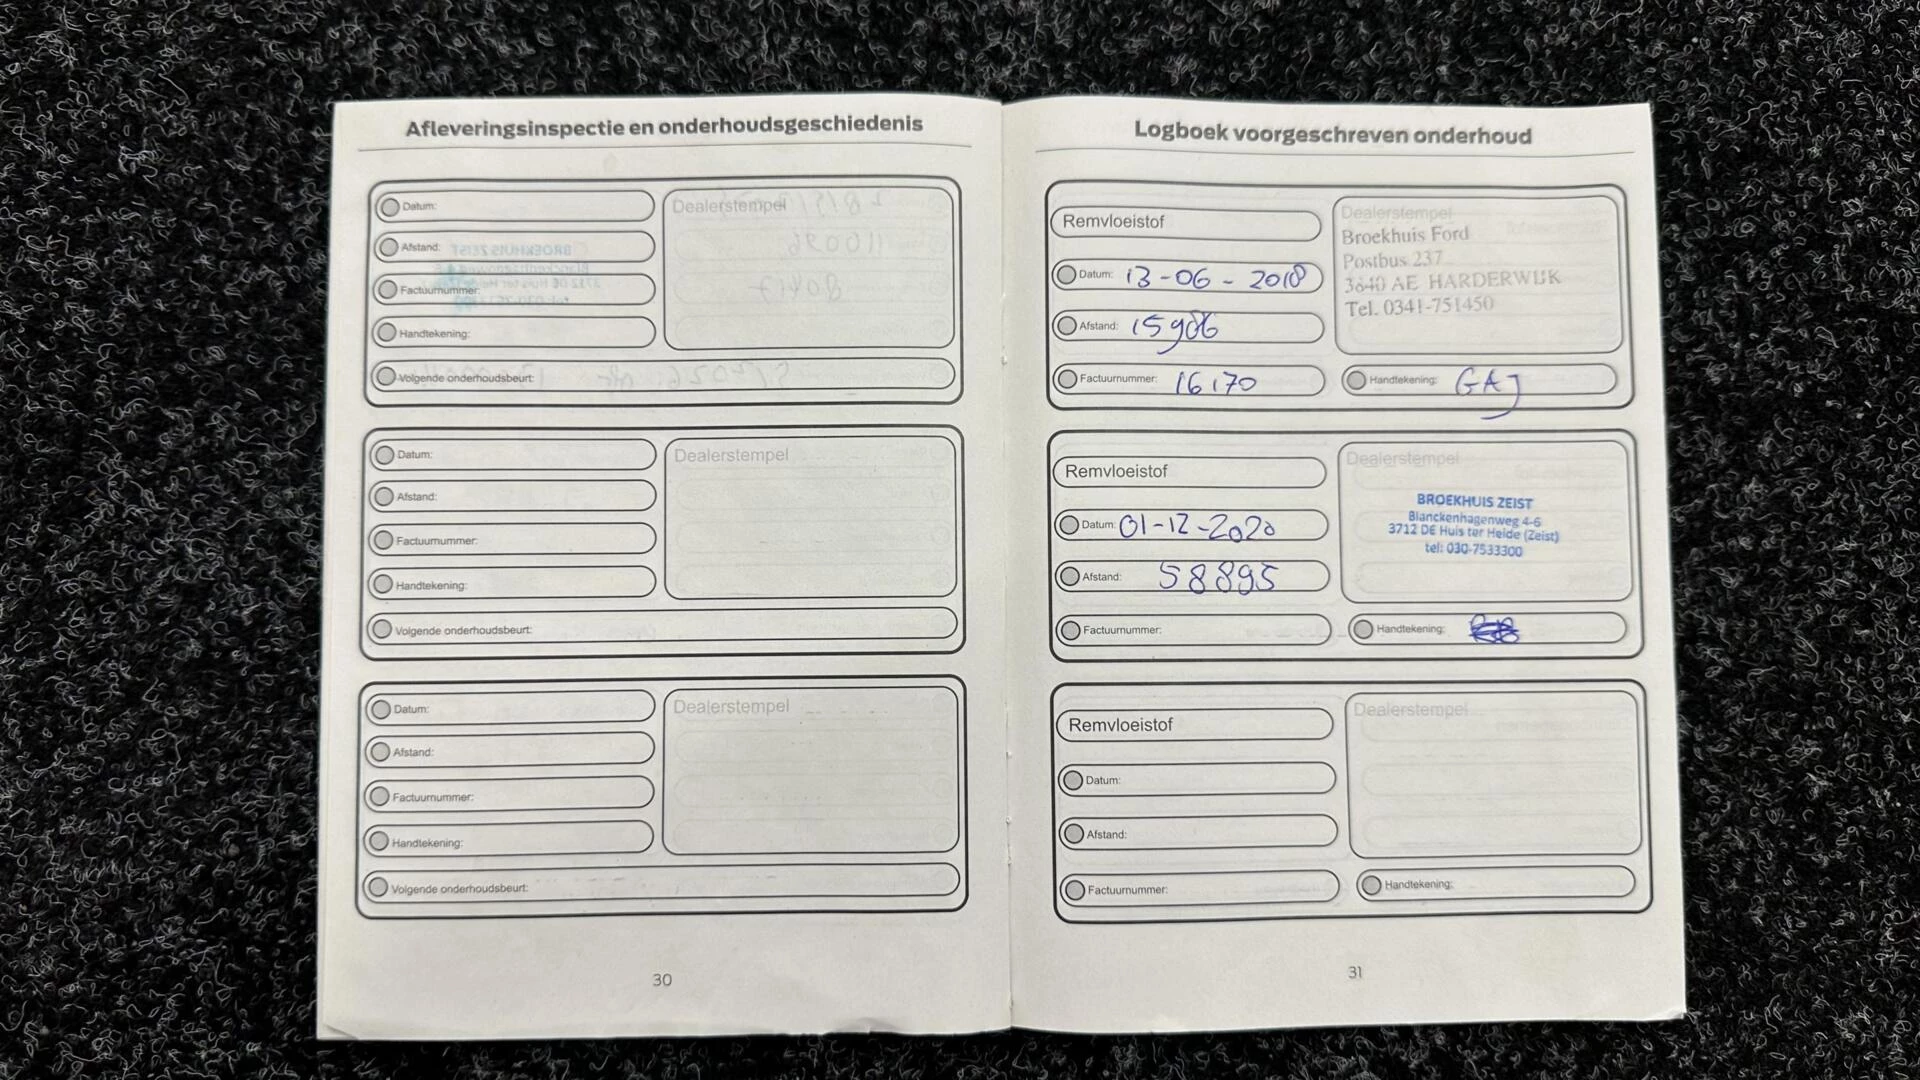 Afleveringsinspectie en onderhoudsgeschiedenis
Datum:
Afstand:
Factuurnummer:
Handtekening:
Volgende onderhoudsbeurt:
Dealerstempel
Datum:
Afstand:
Factuurnummer:
Handtekening:
Volgende onderhoudsbeurt:
Dealerstempel
Datum:
Afstand:
Factuurnummer:
Handtekening:
Volgende onderhoudsbeurt:
Dealerstempel
30
Logboek voorgeschreven onderhoud
Remvloeistof
Datum: 13-06-2018
Afstand: 15986
Factuurnummer: 16170
Dealerstempel
Broekhuis Ford
Postbus 237
3840 AE HARDERWIJK
Tel. 0341-751450
Handtekening: GAJ
Remvloeistof
Datum: 01-12-2020
Afstand: 58895
Factuurnummer:
Dealerstempel
BROEKHUIS ZEIST
Blanckenhagenweg 4-6
3712 DE Huis ter Heide (Zeist)
tel: 030-7533300
Handtekening:
Remvloeistof
Datum:
Afstand:
Factuurnummer:
Dealerstempel
Handtekening:
31